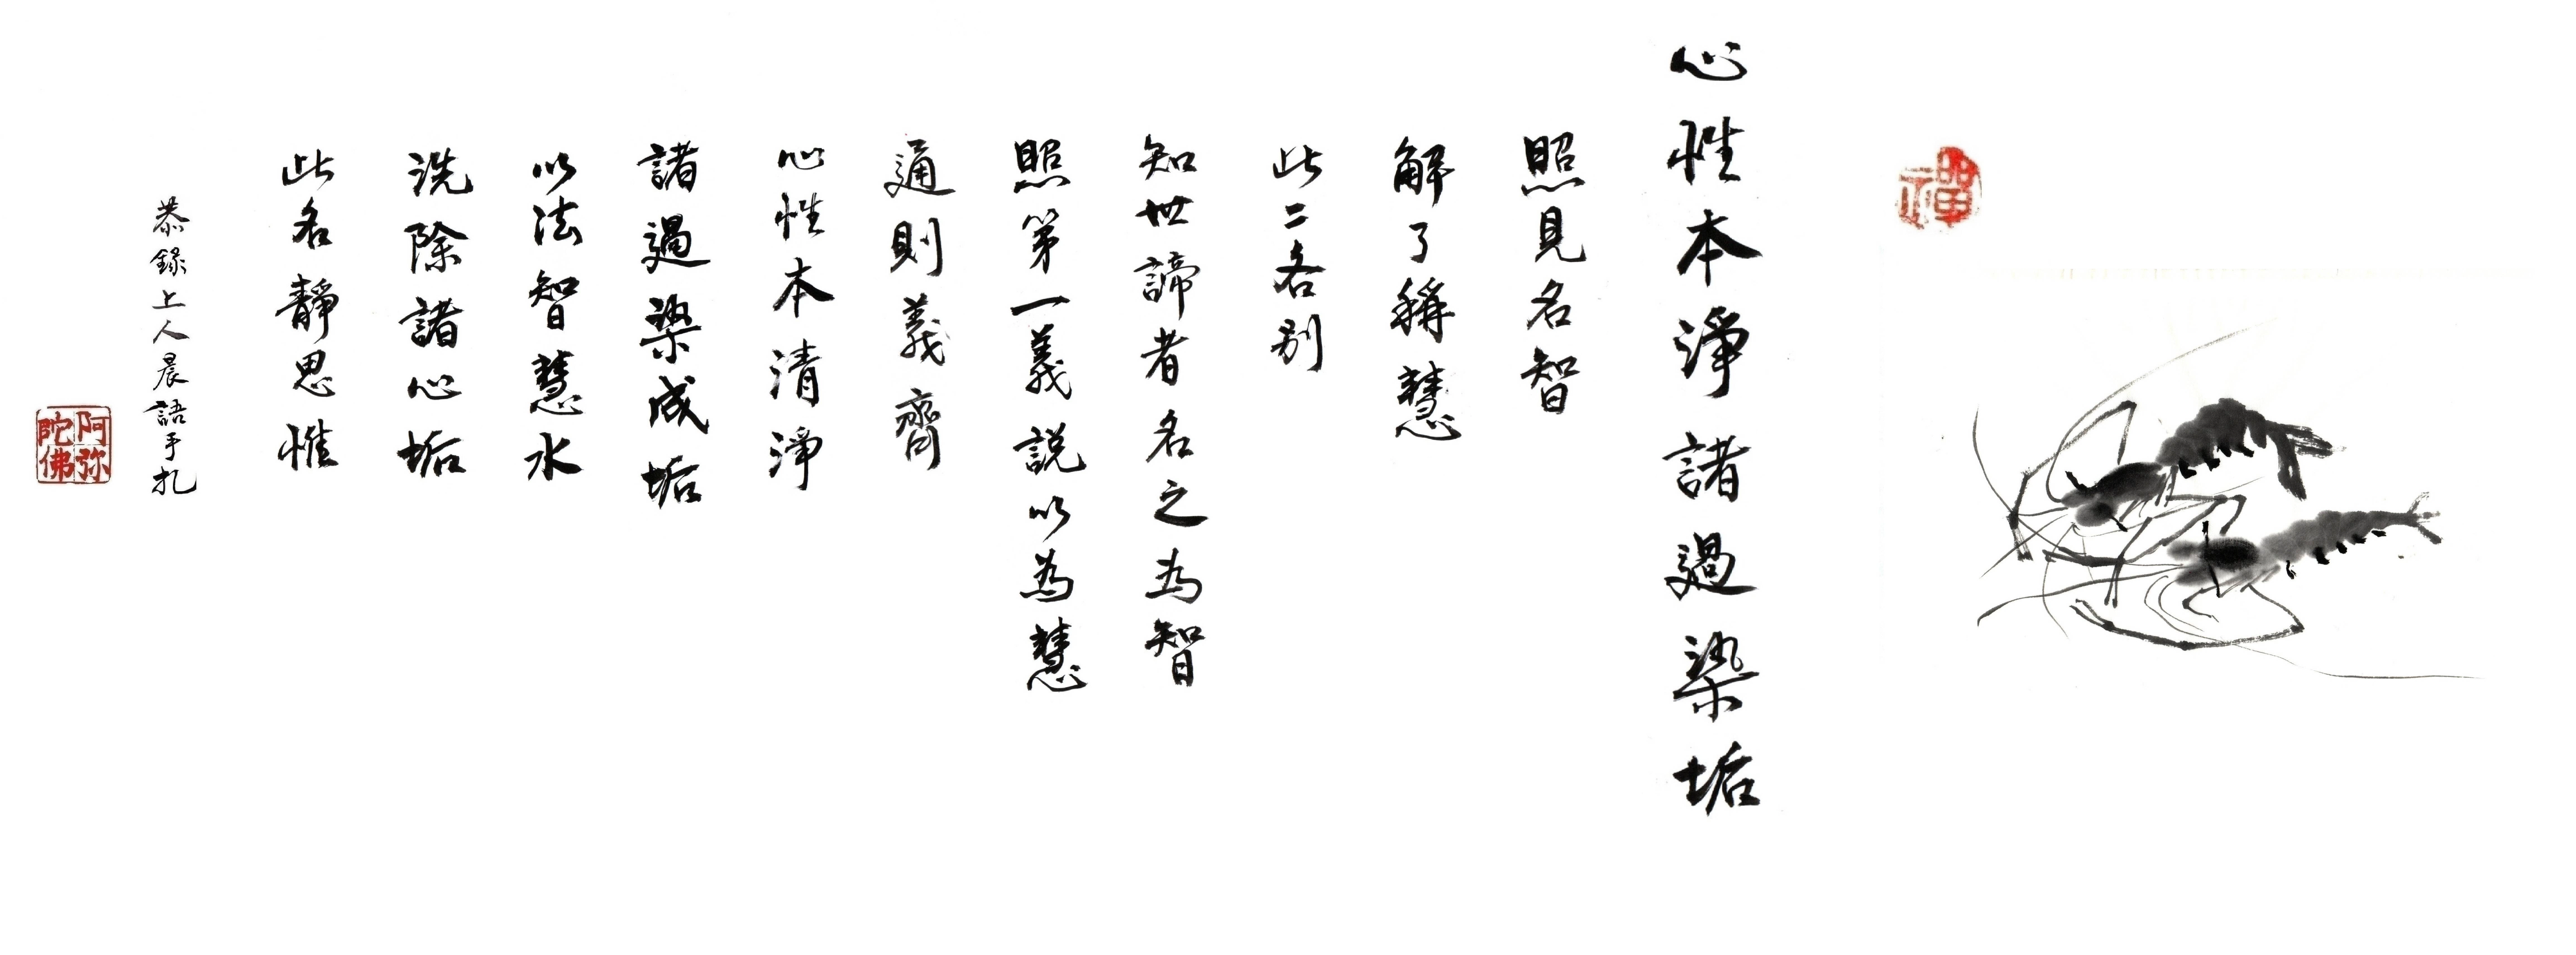 禪
心性本淨諸過染垢
照見名智
解了稱慧
此二各別
知世諦者名之為智
照第一義說以為慧
通則義齊
心性本清淨
諸過染成垢
以法智慧水
洗除諸心垢
此名靜思惟
恭錄上人晨語手札
阿弥陀佛